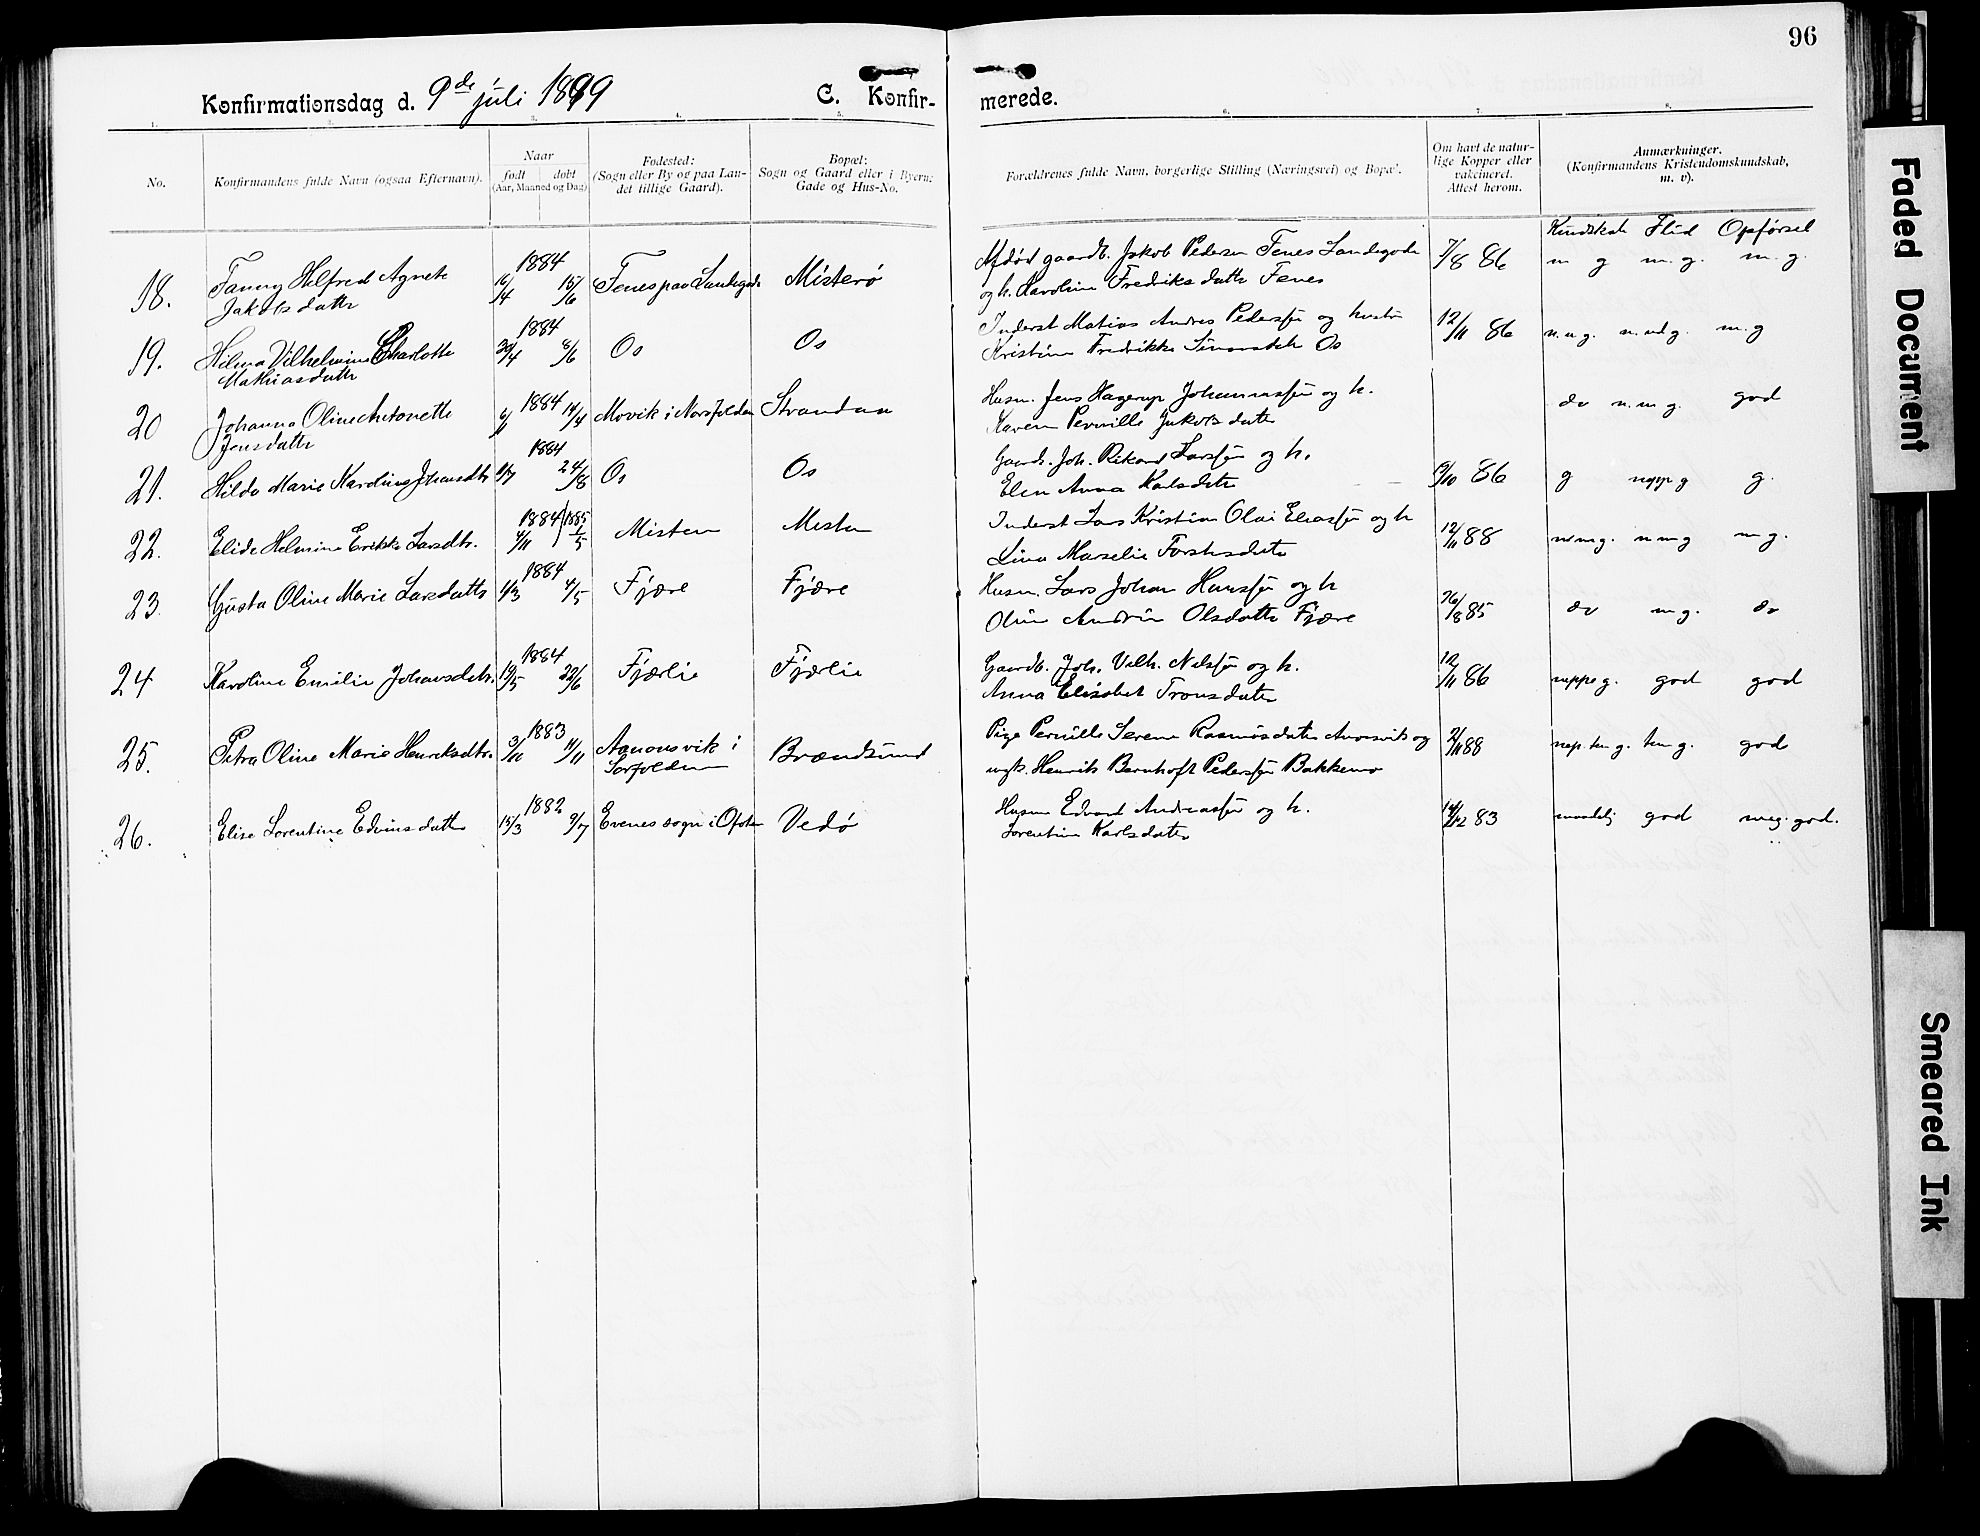 96
Konfirmationsdag d. 9de juli 1899 C. Konfir- merede.
1. 2. 3. 4. 5. 6. 7. 8.
No.
Konfirmandens fulde Navn (ogsaa Efternavn).
Naar
født døbt
(Aar, Maaned og Dag)
Fødested:
(Sogn eller By og paa Lan-
det tillige Gaard).
Bopæl:
Sogn og Gaard eller i Byern:
Gade og Hus-No.
Forældrenes fulde Navn, borgerlige Stilling (Næringsvei) og Bopæl.
Om havt de natur-
lige Kopper eller
vakcineret.
Attest herom.
Anmærkninger.
(Konfirmandens Kristendomskundskab,
m. v).
Kundskab Flid Opførsel
18. Fanny Helfred Agnete
Jakobsdatter
1884
16/4 15/6 Fenes paa Landegode Misterø
Afdød gaardb. Jakob Pedersen Fenes Landegode
og h. Karoline Fredriksdatter Fenes
7/8 86 m g m.g. m.g.
19. Hilma Vilhelmine Charlotte
Mathiasdatter
1884
20/4 8/6 Os Os
Inderst Matias Andres Pedersen og hustru
Kristine Fredrikke Simonsdtr Os
12/11 86 n.m.g. n.m.g. m.g
20 Johanna Oline Antonette
Jensdatter
1884 14/4 Movik i Norfolden Strandaa
Husm. Jens Hagerup Johannessen og h.
Karen Pernille Jakobsdatter
do n.m g. god
21. Hilda Marie Karoline Johansdtr
1884
24/8 Os Os
Gaardb. Joh. Rikard Larssen og h.
Elen Anna Karlsdatter
9/10 86 g nepp g g.
22. Elide Helmine Erikke Larsdtr.
1884 1885
4/11 1/5 Misten Misten
Inderst Lars Kristian Olai Eliassen og h
Lina Marselie
12/11 88 n m g. n m g m g.
23. Gusta Oline Marie Larsdatter
1884
1/3 4/5 Fjære Fjære
Husm. Lars Johan Hanssen og h
Oline Andrine Olsdatter Fjære
26/8 85 do m g. do
24 Karoline Emilie Johansdtr.
1884
19/5 22/6 Fjærlie Fjærlie
Gaardb. Joh. Vilh. Nilssen og h.
Anna Elisabet Tronsdatter
12/11 86 neppe g. god god
25. Petra Oline Marie Henriksdtr.
1883
3/10 11/11 Aanonsvik i
Sørfolden
Brændsund
Pige Pernille Serene Rasmusdatter og
ungk. Henrik Bernhoft Pederssen Bakkemo
2/11 88 nep. tem g. tem g. god
26. Elise Lorentine Edvinsdatter
1882
15/3 9/7 Evenes sogn i Ofoten Vedø
Husm Edvard Andreassen og h.
Lorentine Karlsdatter
14/12 83 maadelig god meg. god.
Faded Document
Smeared Ink